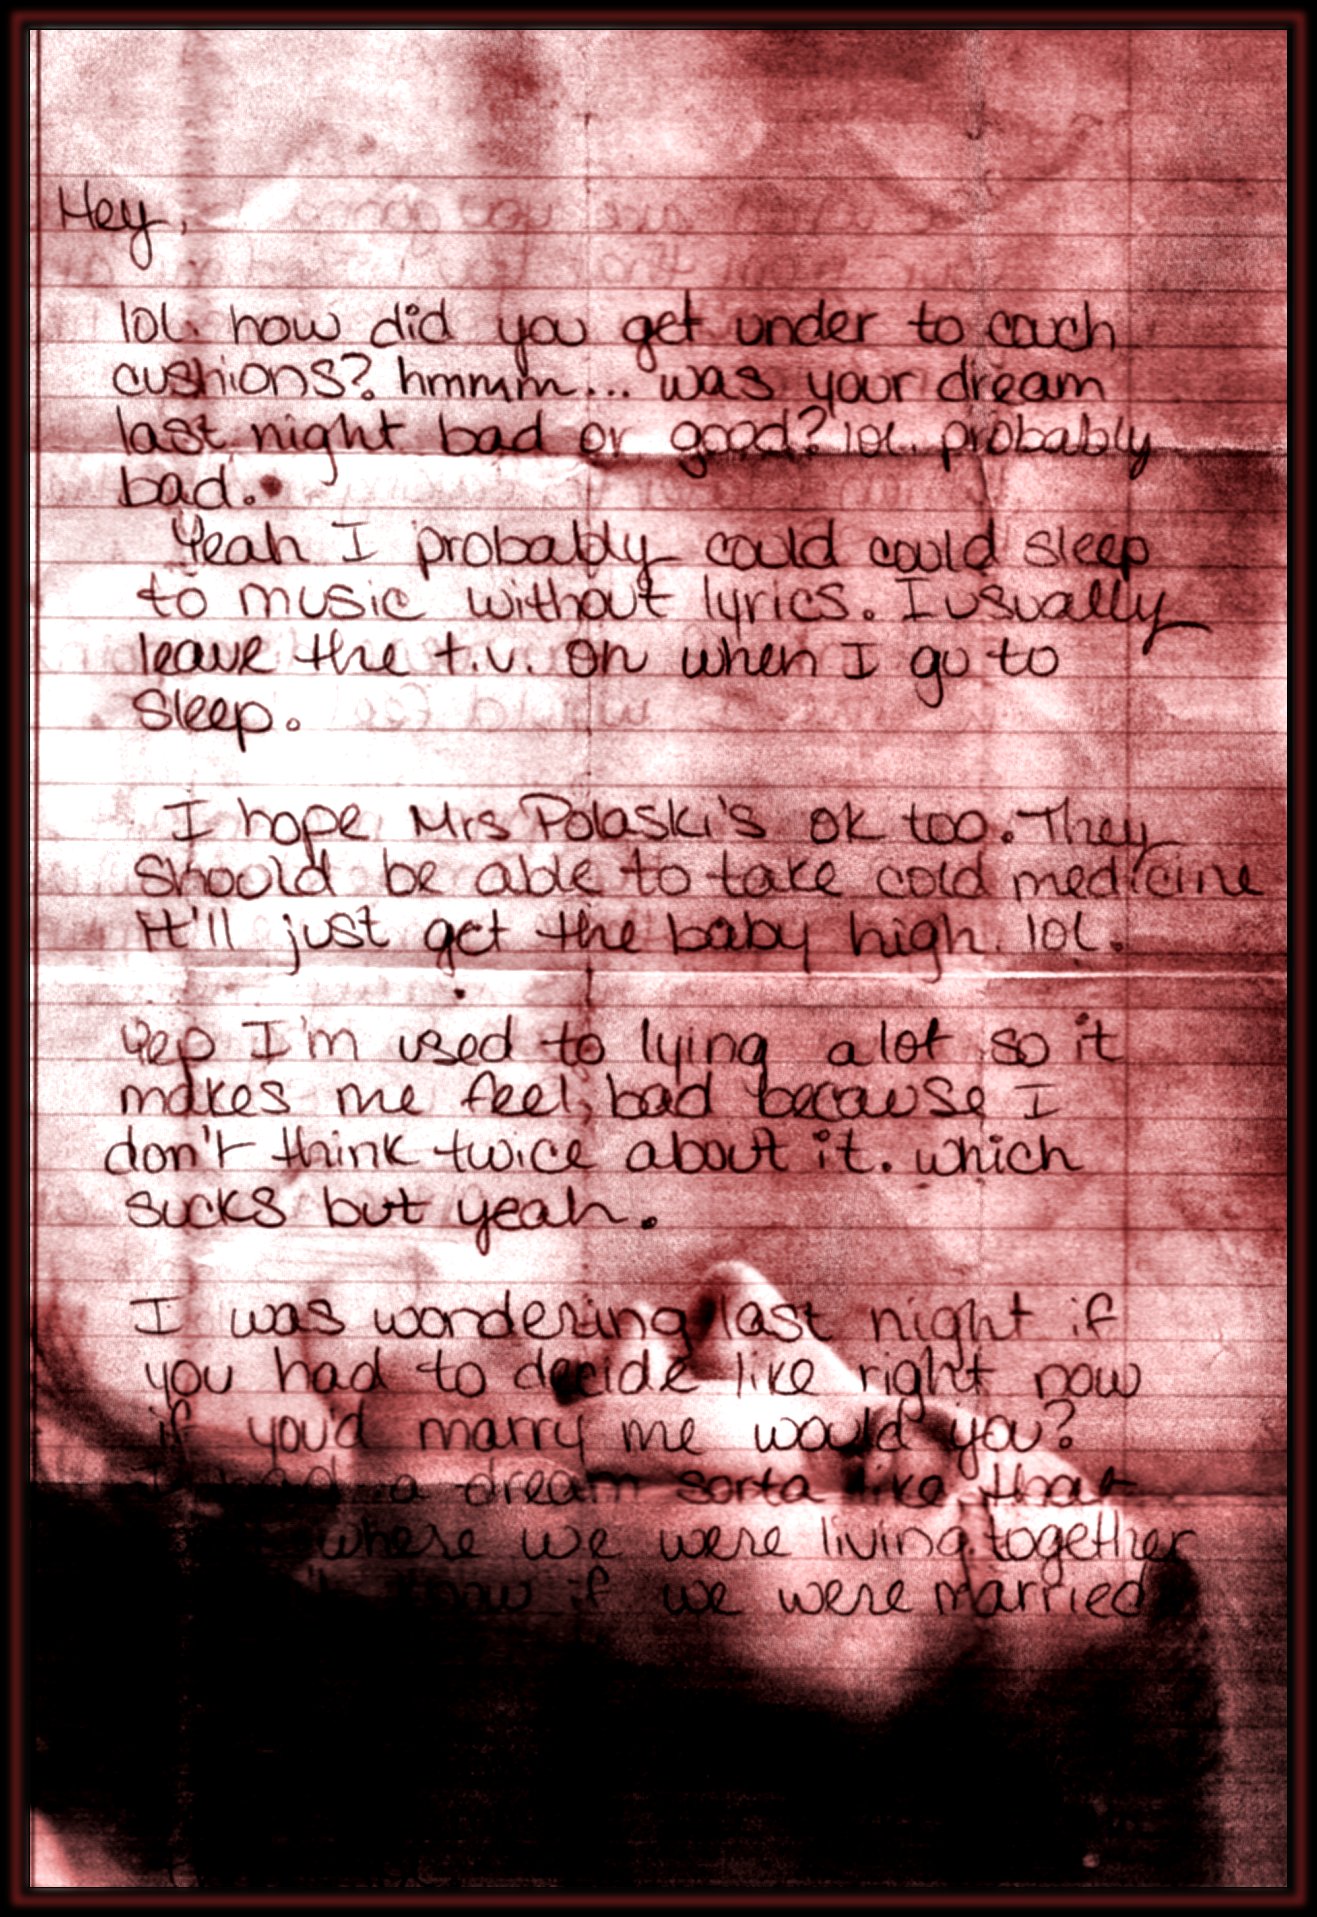 Hey,
lol. how did you get under to couch
cushions? hmmm... was your dream
last night bad or good? lol. probably
bad.
Yeah I probably could could sleep
to music without lyrics. I usually
leave the t.v. on when I go to
sleep.
I hope Mrs Polaski's ok too. They
should be able to take cold medicine
It'll just get the baby high. lol.
Yep I'm used to lying alot so it
makes me feel bad because I
don't think twice about it. which
sucks but yeah.
I was wondering last night if
you had to decide like right now
if you'd marry me would you?
had a dream sorta like that
where we were living together
know if we were married